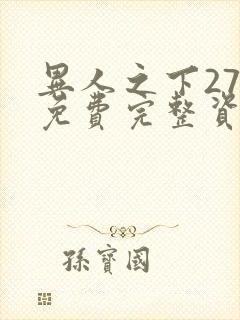 異人之下27
免費完整資
孫寶國